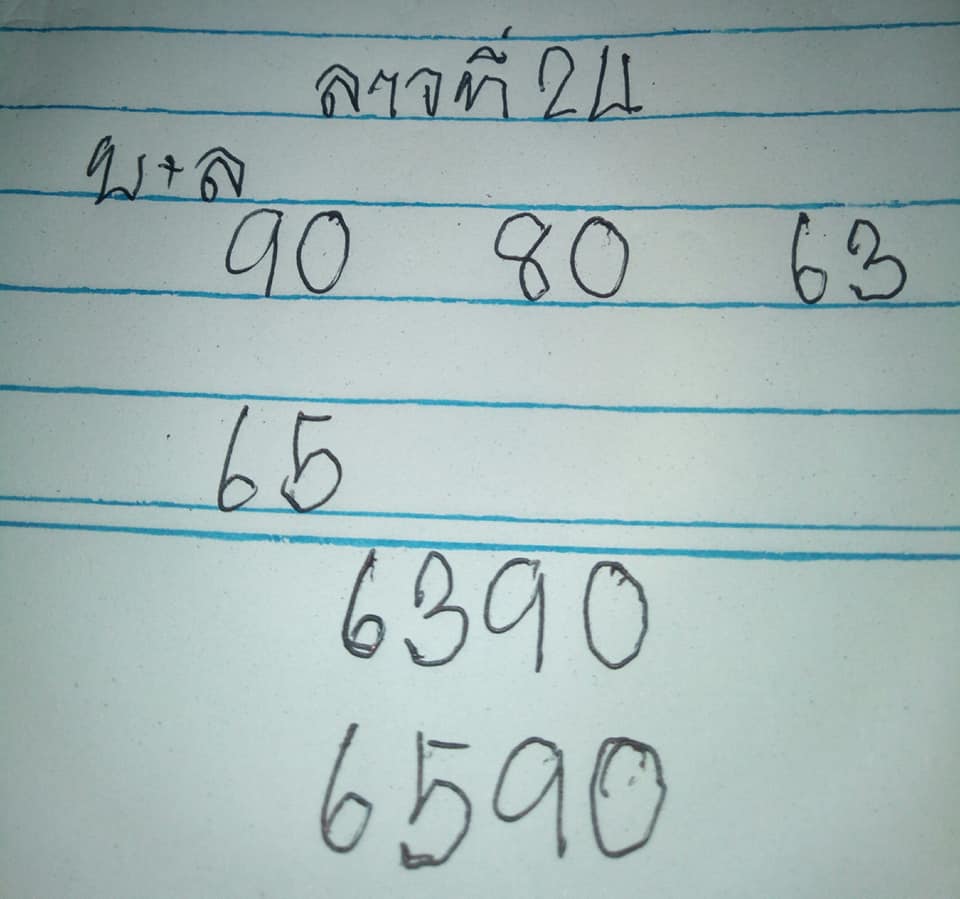 ลาวที่ 24
บ+ล
90 80 63
65
6390
6590